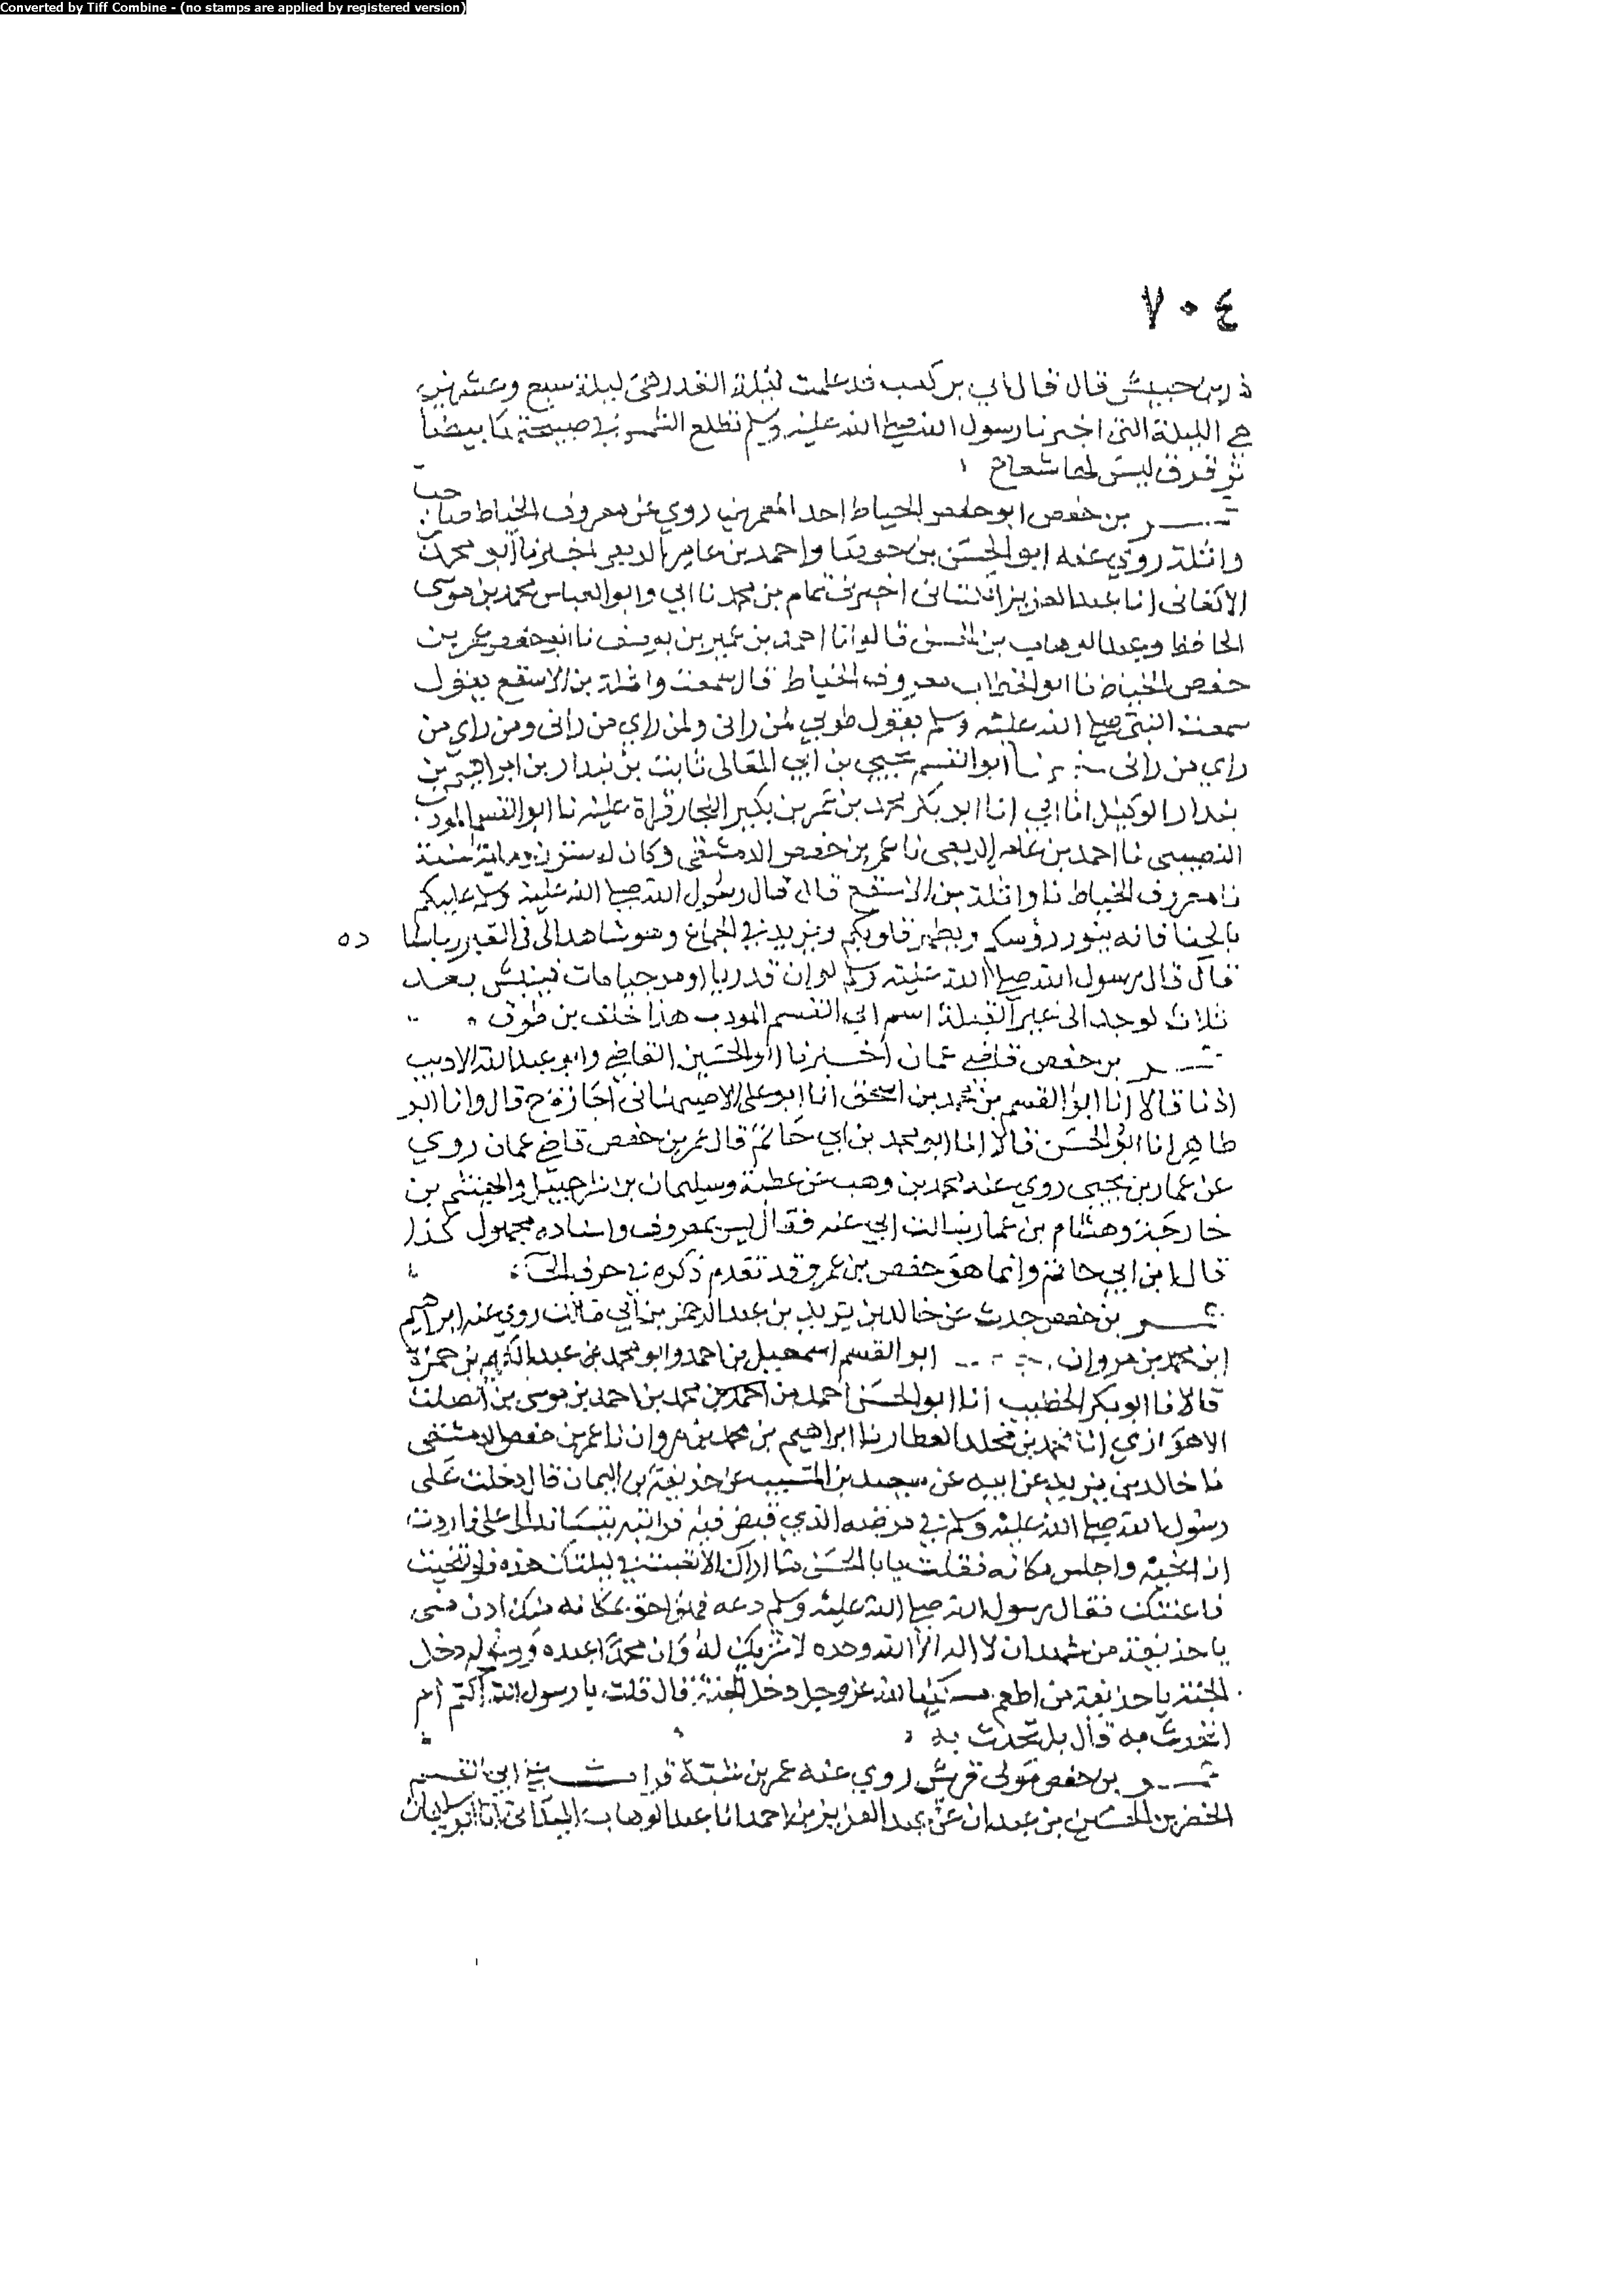 Converted by Tiff Combine - (no stamps are applied by registered version)
٧٠٤
زر بن حبيش قال قال ابي بن كعب قد علمت ليلة القدر هي ليلة سبع وعشرين
هي الليلة التي اخبرنا رسول الله صلى الله عليه وسلم تطلع الشمس في صبيحتها بيضا
ترقرق ليس لها شعاع
عمر بن حفص ابو حفص الخياط احد المعمرين روي عن معروف الخياط صاحب
واثلة روي عنه ابو الحسن بن جوصا واحمد بن عامر الربعي اخبرنا ابو محمد بن
الاكفاني انا عبد العزيز الكتاني اخبرني تمام بن محمد نا ابي وابو العباس محمد بن موسى
الحافظ وعبد الوهاب بن الحسن قالوا نا احمد بن عمير بن يوسف نا ابو حفص عمر بن
حفص الخياط نا ابو الخطاب معروف الخياط قال سمعت واثلة بن الاسقع يقول
سمعت النبي صلى الله عليه وسلم يقول طوبي لمن راني ولمن راي من راني ومن راي من
راي من راني ابو القسم يحيى بن ابي المعالي ثابت بن بندار بن ابراهيم بن
بندار الوكيل انا ابي انا ابو بكر محمد بن عمر بن بكير النجار قراة عليه نا ابو القسم المودب
النصيبي نا احمد بن عامر الربعي نا عمر بن حفص الدمشقي وكان له ستون وماية سنة
نا معروف الخياط نا واثلة بن الاسقع قال قال رسول الله صلى الله عليه وسلم عليكم
بالحنا فانه ينور رؤسكم ويطهر قلوبكم ويزيد في الجماع وهو شاهد لي في القبر
قال قال رسول الله صلى الله عليه وسلم لو ان قدريا او مرجيا مات فنبش بعد
ثلاث لوجد الى غير القبلة اسم ابي القسم المودب هذا خلف بن
عمر بن حفص قاضي عمان اخبرنا ابو الحسين القاضي وابو عبد الله الاديب
اذنا قالا انا ابو القسم بن محمد بن اسحق انا ابو علي الاصبهاني اجازة ح قال وانا ابو
طاهر انا ابو الحسن قالا انا ابو محمد بن ابي حاتم قال عمر بن حفص قاضي عمان روي
عن عمار بن يحيى روي عنه محمد بن وهب بن عطية وسليمان بن شرحبيل والهيثم بن
خارجة وهشام بن عمار سالت ابي عنه فقال ليس بمعروف واسناده مجهول كذا
قال ابن ابي حاتم وانما هو حفص بن عمر وقد تقدم ذكره في حرف الحا
عمر بن حفص حدث عن خالد بن يزيد بن عبد الرحمن بن ابي مالك روي عنه ابراهيم
ابن محمد بن مروان ابو القسم اسمعيل بن احمد وابو محمد بن عبد الكريم بن حمزة
قالا نا ابو بكر الخطيب انا ابو الحسن احمد بن محمد بن احمد بن موسى بن الصلت
الاهوازي انا محمد بن مخلد العطار نا ابراهيم بن محمد بن مروان نا عمر بن حفص الدمشقي
نا خالد بن يزيد عن ابيه عن سعيد بن المسيب عن حذيفة بن اليمان قال دخلت على
رسول الله صلى الله عليه وسلم في مرضه الذي قبض فيه فرايته يتساند الى علي فاردت
ان انحيه واجلس مكانه فقلت يا با الحسن ما اراك الا تعبت في ليلتك هذه فلو تنحيت
فاعنتك فقال رسول الله صلى الله عليه وسلم دعه فهو احق بمكانه منك ادن مني
يا حذيفة من شهد ان لا اله الا الله وحده لا شريك له وان محمدا عبده ورسوله دخل
الجنة يا حذيفة من اطعم مسكينا لله عز وجل دخل الجنة قال قلت يا رسول الله اكتم ام
اتحدث به قال بل تحدث به
عمر بن حفص مولى قريش روي عنه عمر بن شبة قرات على ابي القسم
الخضر بن الحسين بن عبدان عن عبد العزيز بن احمد انا عبد الوهاب الميداني انا ابو سليمان